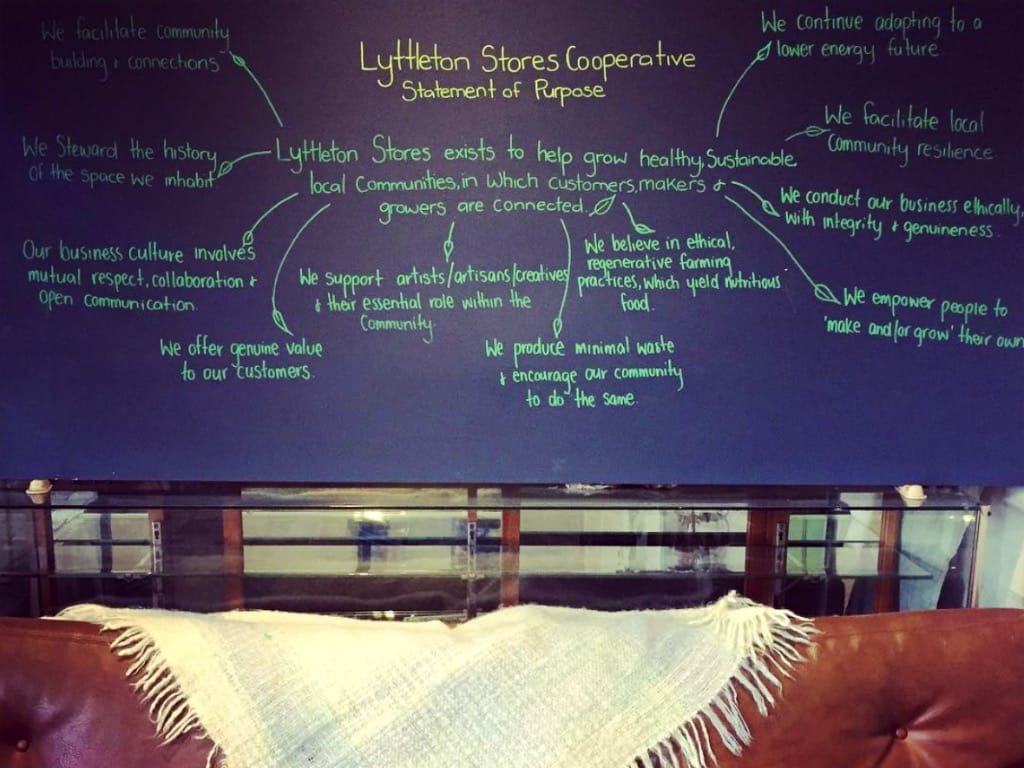 Lyttleton Stores Cooperative
Statement of Purpose
Lyttleton Stores exists to help grow healthy, Sustainable
local Communities, in which customers, makers &
growers are connected.
We facilitate community
building & connections
We Steward the history
of the space we inhabit
Our business culture involves
mutual respect, collaboration &
open communication.
We offer genuine value
to our customers.
We support artists/artisans/creatives
& their essential role within the
Community.
We produce minimal waste
& encourage our community
to do the same.
We believe in ethical,
regenerative farming
practices, which yield nutritious
food.
We empower people to
'make and/or grow' their own
We conduct our business ethically,
with integrity & genuineness.
We facilitate local
Community resilience
We continue adapting to a
lower energy future